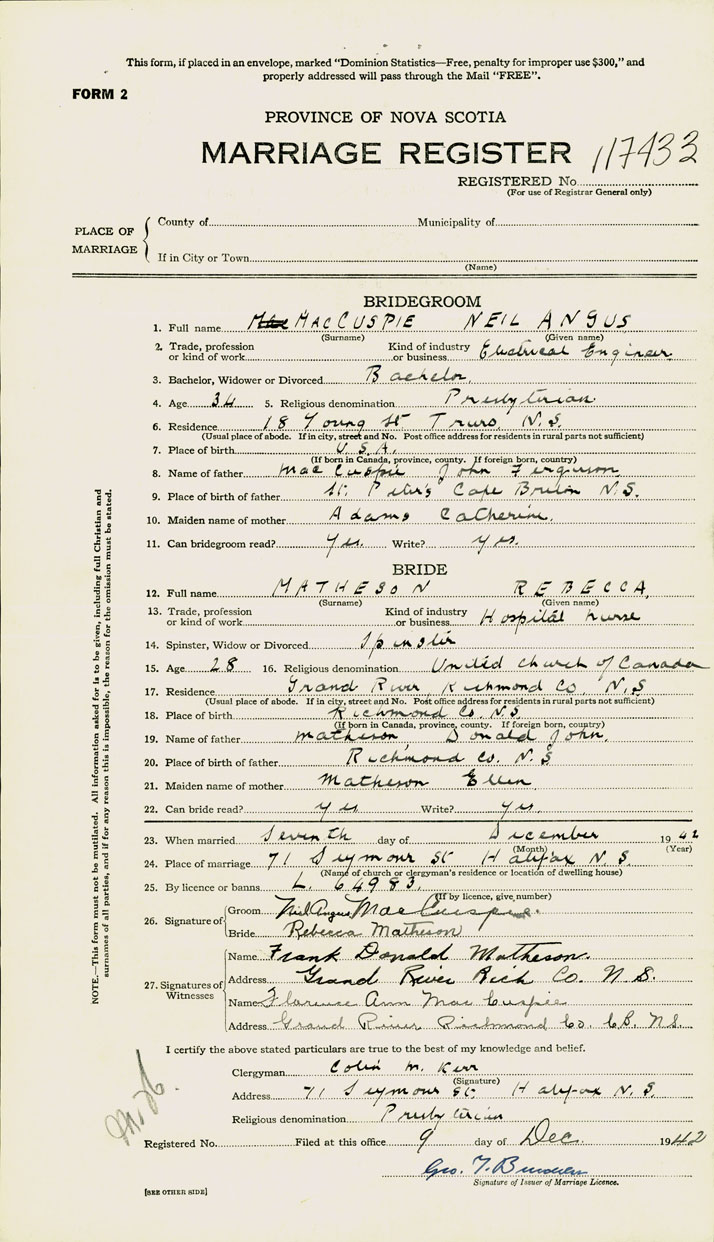 This form, if placed in an envelope, marked "Dominion Statistics—Free, penalty for improper use $300," and
properly addressed will pass through the Mail "FREE".
FORM 2
PROVINCE OF NOVA SCOTIA
MARRIAGE REGISTER 117433
REGISTERED No.
(For use of Registrar General only)
PLACE OF MARRIAGE
County of Municipality of
If in City or Town
(Name)
BRIDEGROOM
1. Full name MacCUSPIE NEIL ANGUS
(Surname) (Given name)
2. Trade, profession or kind of work Kind of industry or business Electrical Engineer
3. Bachelor, Widower or Divorced Bachelor.
4. Age 34 5. Religious denomination Presbyterian
6. Residence 18 Young St Truro N.S.
(Usual place of abode. If in city, street and No. Post office address for residents in rural parts not sufficient)
7. Place of birth U.S.A.
(If born in Canada, province, county. If foreign born, country)
8. Name of father MacCuspie John Ferguson
9. Place of birth of father St. Peter's Cape Breton N.S.
10. Maiden name of mother Adams Catherine.
11. Can bridegroom read? yes. Write? yes.
BRIDE
12. Full name MATHESON REBECCA
(Surname) (Given name)
13. Trade, profession or kind of work Kind of industry or business Hospital nurse
14. Spinster, Widow or Divorced Spinster
15. Age 28 16. Religious denomination United church of Canada
17. Residence Grand River, Richmond Co. N.S
(Usual place of abode. If in city, street and No. Post office address for residents in rural parts not sufficient)
18. Place of birth Richmond Co. N.S.
(If born in Canada, province, county. If foreign born, country)
19. Name of father Matheson Donald John.
20. Place of birth of father Richmond Co. N.S
21. Maiden name of mother Matheson Ellen
22. Can bride read? yes Write? yes.
23. When married Seventh day of December 1942
(Month) (Year)
24. Place of marriage 71 Seymour St Halifax N.S.
(Name of church or clergyman's residence or location of dwelling house)
25. By licence or banns L. 64983.
(If by licence, give number)
26. Signature of Groom Neil Angus MacCuspie.
Bride Rebecca Matheson
27. Signatures of Witnesses
Name Frank Donald Matheson.
Address Grand River Rich Co. N.S.
Name Florence Ann MacCuspie
Address Grand River Richmond Co. C.B. N.S.
I certify the above stated particulars are true to the best of my knowledge and belief.
Clergyman Colin M. Kerr
(Signature)
Address 71 Seymour St. Halifax N.S.
Religious denomination Presbyterian
Registered No. Filed at this office 9 day of Dec. 1942
Signature of Issuer of Marriage Licence.
[SEE OTHER SIDE]
NOTE.—This form must not be mutilated. All information asked for is to be given, including full Christian and
surnames of all parties, and if for any reason this is impossible, the reason for the omission must be stated.